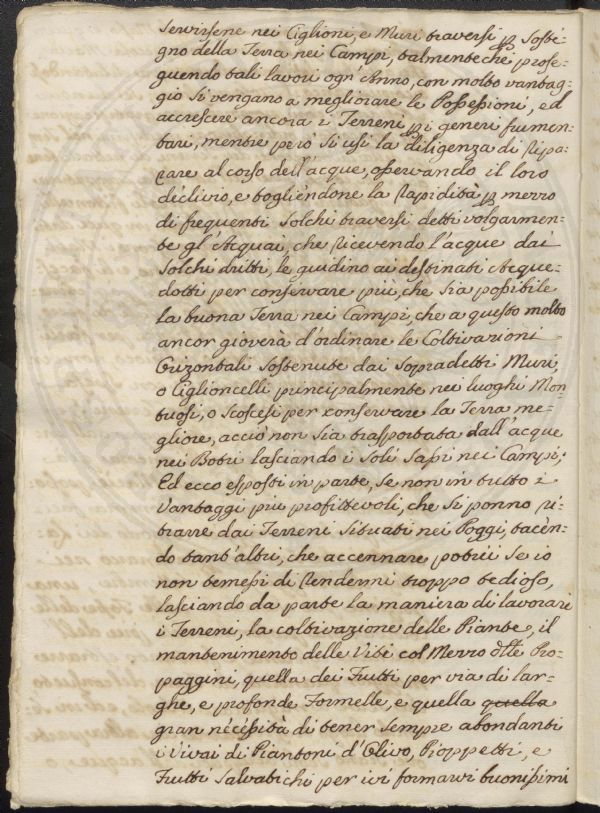 servirsene nei Ciglioni, e Muri traversi ꝑ soste-
gno della Terra nei Campi, talmente chè prose-
guendo tali lavori ogn'Anno, con molto vantag-
gio si vengano a megliorare le Possessioni, ed
accrescere ancora i Terreni ꝑ i generi frumen-
tari, mentre però si usi la diligenza di ripa-
rare al corso dell'acque, osservando il loro
declivio, e togliendone la rapidità ꝑ mezzo
di frequenti solchi traversi detti volgarmen-
te gl'Acquai, che ricevendo l'acque dai
solchi dritti, le guidino ai destinati Acque-
dotti per conservare più, che sia possibile
la buona Terra nei Campi, che a questo molto
ancor gioverà d'ordinare le Coltivazioni
Orizontali sostenute dai sopradetti Muri,
o Ciglioncelli principalmente nei luoghi Mon-
tuosi, o scoscesi per conservare la Terra me-
gliore, acciò non sia trasportata dall'acque
nei Botri lasciando i soli sassi nei Campi;
Ed ecco esposti in parte, se non in tutto i
Vantaggi più profittevoli, che si ponno ri-
trarre dai Terreni situati nei Poggi, tacen-
do tant'altri, che accennare potrei se io
non temessi di rendermi troppo tedioso,
lasciando da parte la maniera di lavorare
i Terreni, la coltivazione delle Piante, il
mantenimento delle Viti col Mezzo dtte Pro-
paggini, quella dei Frutti per via di lar-
ghe, e profonde Formelle, e quella quella
gran necissità di tener sempre abondanti
i Vivai di Piantoni d'Olivo, Pioppetti, e
Frutti salvatichi per ivi formarvi buonissimi